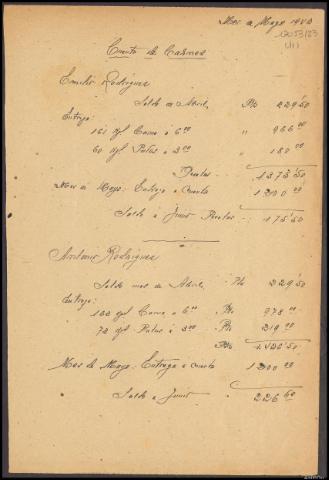 Mes de Mayo 1940
Cuenta de Carnes
Emilio Rodríguez
Saldo de Abril Pts 229'50
Entrega:
161 kgl Carne á 6 00 " 966 00
60 kgl Patas á 3 00 " 180 00
Pesetas 1.375'50
Mes de Mayo: Entrega a cuenta 1.200 00
Saldo á Junio Pesetas 175'50
Antonio Rodríguez
Saldo mes de Abril Pts 229'50
Entrega:
163 kgl Carne á 6 00 Pts 978 00
73 kgl Patas á 3 00 Pts 219 00
Pts 1.426'50
Mes de Mayo: Entrega a cuenta 1.200 00
Saldo á Junio 226 50